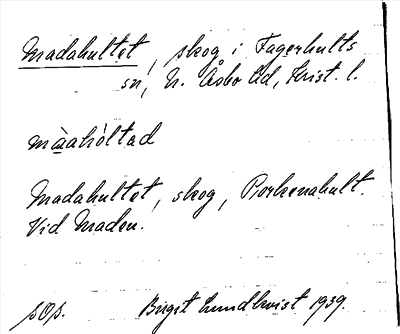 Madahultet, skog i Fagerhults
sn, N. Åsbo hd, Krist. l.
màahòltad
Madahultet, skog, Porkenahult.
Vid Maden.
sOp. Birgit Lundkvist 1939.